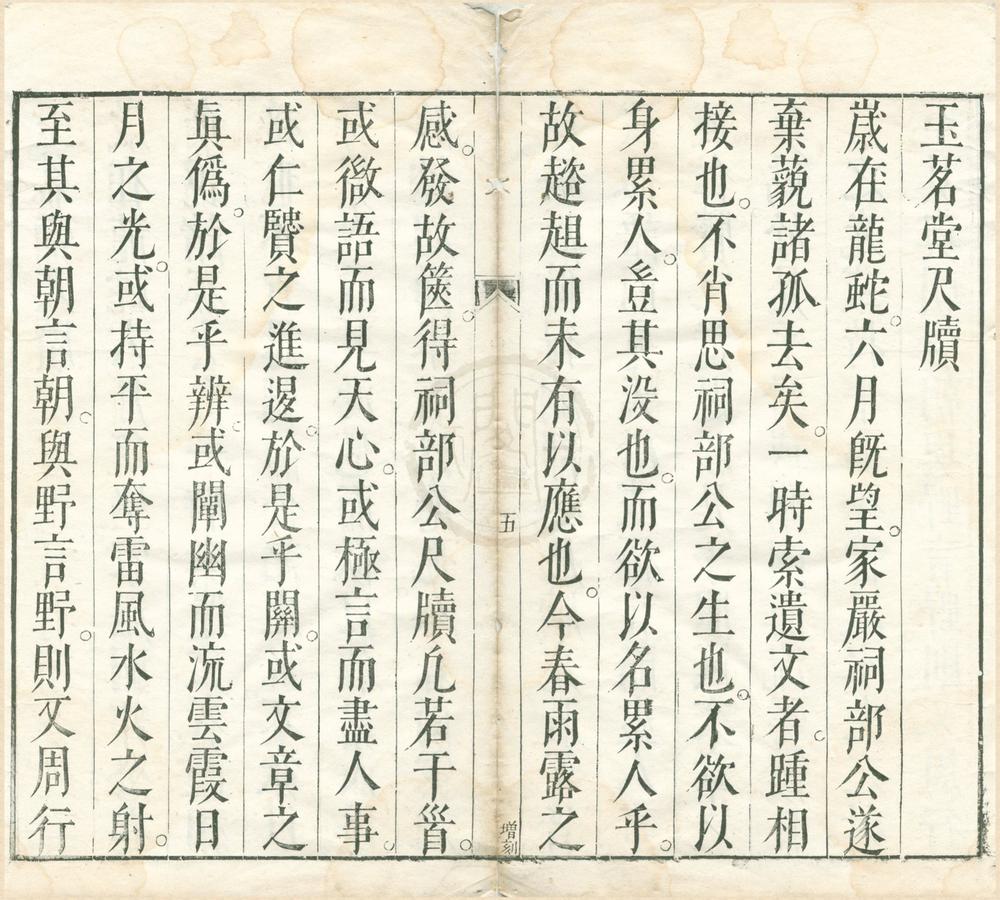 玉茗堂尺牘
歲在龍蛇六月旣望家嚴祠部公遂
棄藐諸孤去矣一時索遺文者踵相
接也不肖思祠部公之生也不欲以
身累人豈其没也而欲以名累人乎
故趦趄而未有以應也今春雨露之
五
增刻
感發故篋得祠部公尺牘凢若干首
或微語而見天心或極言而盡人事
或仁贒之進退於是乎關或文章之
眞僞於是乎辨或闡幽而流雲霞日
月之光或持平而奪雷風水火之射
至其與朝言朝與野言野則又周行